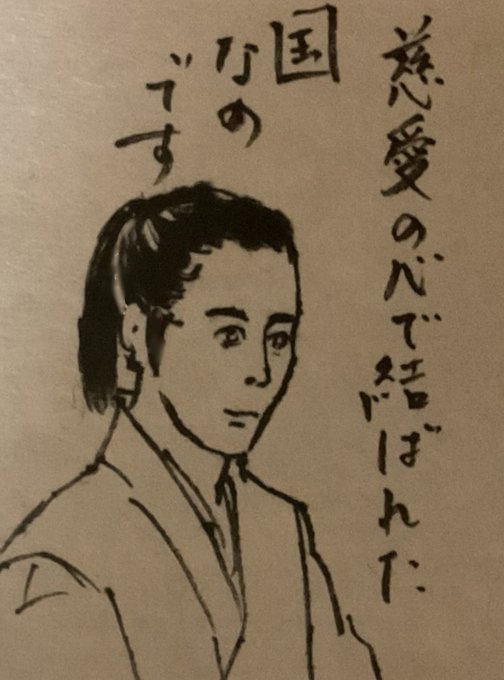 慈愛の心で結ばれた
国
なの
です